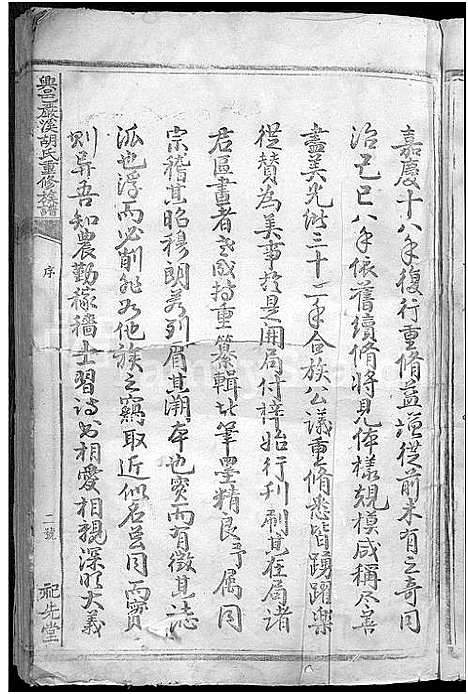 嘉慶十八年復行重脩益謹從前未有之奇同
治己巳八年依舊續脩將見体樣規模咸稱尽善
盡美光緒三十二年合族公議重脩悉皆踴躍樂
從賛為美事於是開局付梓始行刊刷其在局諸
君區畫者老成持重纂輯 筆墨精良予属同
宗稽其昭穆明若列眉其溯本也實而有徵其誌
派也浮而必削非如他族之竊取近似名曰同而實
則异吾知農勤稼穡士習詩书相愛相親深明大義
興邑巖溪胡氏重修族譜
序
二號
祀先堂